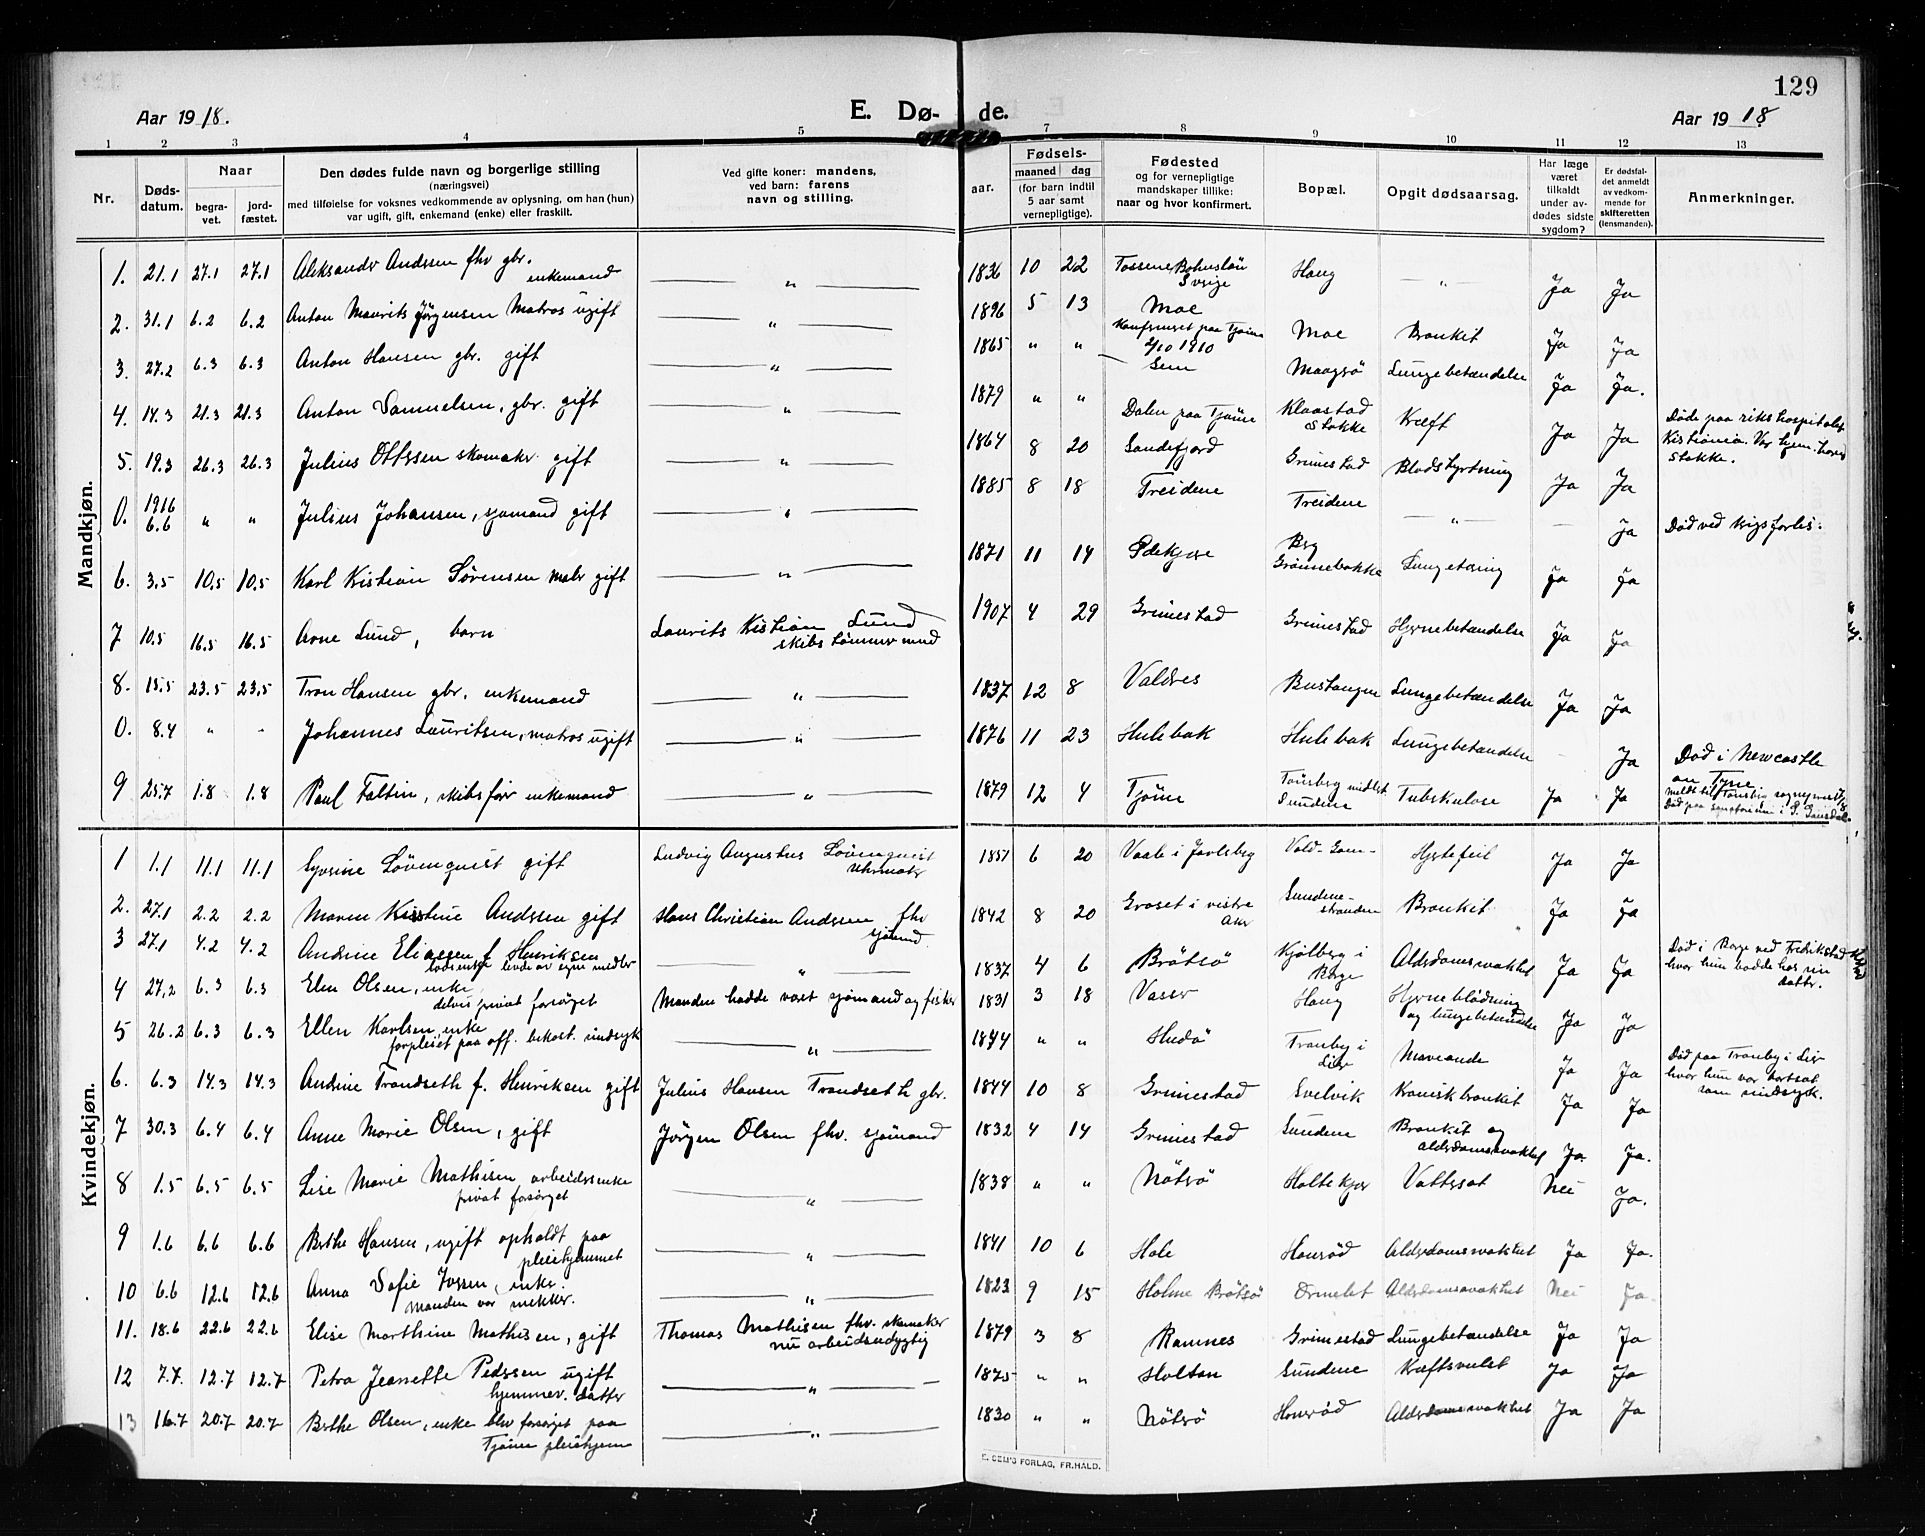 129
Aar 1918.
E. Dø- de.
Aar 1918
1 2 3 4 5 7 8 9 10 11 12 13
Nr.
Døds-datum.
Naar
begra-vet.
jord-fæstet.
Den dødes fulde navn og borgerlige stilling
(næringsvei)
med tilføielse for voksnes vedkommende av oplysning, om han (hun)
var ugift, gift, enkemand (enke) eller fraskilt.
Ved gifte koner: mandens,
ved barn: farens
navn og stilling.
Fødsels-
aar.
maaned dag
(for barn indtil
5 aar samt
vernepligtige).
Fødested
og for vernepligtige
mandskaper tillike:
naar og hvor konfirmert.
Bopæl.
Opgit dødsaarsag.
Har læge
været
tilkaldt
under av-
dødes sidste
sygdom?
Er dødsfal-
det anmeldt
av vedkom-
mende for
skifteretten
(lensmanden).
Anmerkninger.
Mandkjøn.
1. 21.1 27.1 27.1 Aleksander Anderssen fhv gbr. enkemand " 1836 10 22 Tossene Bohuslän Sverige Haug " Ja Ja
2. 31.1 6.2 6.2 Anton Maurits Jörgensen Matros ugift " 1896 5 13 Moe Konfirmeret paa Tjöme 2/10 1910 Moe Bronkit Ja Ja
3. 27.2 6.3 6.3 Anton Hansen gbr. gift " 1865 " " Sem Maagerö Lungebetændelse Ja Ja.
4. 14.3 21.3 21.3 Anton Samuelsen, gbr. gift " 1879 " " Dalen paa Tjöme Klaastad Stokke Kræft Ja Ja Döde paa rikshospitalet Kristiania. Var hjem.hörig Stokke.
5. 19.3 26.3 26.3 Julius Ottersen skomaker gift " 1864 8 20 Sandefjord Grimestad Blodstyrtning Ja Ja
0. 1916 6.6 " " Julius Johansen, sjömand gift " 1885 8 18 Treidene Treidene " — Ja Död ved krigsforlis.
6. 3.5 10.5 10.5 Karl Kristian Sörensen maler gift " 1871 11 14 Ödekjære Berg Grönnebakke Lungetæring Ja Ja
7 10.5 16.5 16.5 Arne Lund, barn Laurits Kristian Lund skibstömmermand 1907 4 29 Grimestad Grimestad Hjernebetændelse Ja Ja
8. 15.5 23.5 23.5 Tron Hansen gbr. enkemand " 1837 12 8 Valdres Bustangen Lungebetændelse Ja Ja
0. 8.4 " " Johannes Lauritsen, matros ugift " 1876 11 23 Hulebak Hulebak Lungebetændelse — Ja Död i Newcastle on Tyne
9 25.7 1.8 1.8 Paul Faltin, skibsförer enkemand " 1879 12 4 Tjöme Tönsberg midlert. Sundene Tuberkulose Ja Ja Meldt til Tönsberg sogneprest 7/8 Död paa sanatorium i S. Gausdal.
Kvindekjøn.
1 1.1 11.1 11.1 Syverine Lövenquist gift Ludvig Augustus Lövenquist Uhrmaker 1851 6 20 Vaale i Jarlsberg Vold-Gaar- Hjertefeil Ja Ja
2. 27.1 2.2 2.2 Maren Kirstine Anderssen gift Hans Christian Anderssen fhv sjömand. 1842 8 20 Groset i vestre Aker Sundene-stranden Bronkit Ja Ja
3 27.1 4.2 4.2 Andrine Eliassen f. Henriksen losenke levde av egne midler " 1837 4 6 Brötsö Kjölberg i Borge Alderdomssvakhet Ja Ja Död i Borge ved Fredrikstad hvor hun bodde hos sin datter.
4 27.2 6.3 6.3 Elen Olsen, enke, delvis privat forsörget Manden hadde vært sjömand og fisker 1831 3 18 Vasser Haug Hjerneblödning og lungebetændelse Ja Ja
5 26.2 6.3 6.3 Ellen Karlsen, enke forpleiet paa off. bekost. sindsyk " 1844 " " Hudö Tranby i Lier Maveonde Ja Ja Död paa Tranby i Lier hvor hun var bortsat som sindsyk.
6. 6.3 14.3 14.3 Andine Trondseth f. Henriksen gift Julius Hansen Trondseth gbr. 1844 10 8 Grimestad Svelvik Kronisk bronkit Ja Ja
7 30.3 6.4 6.4 Anne Marie Olsen, gift Jörgen Olsen fhv. sjömand 1832 4 14 Grimestad Sundene Bronkit og alderdomssvakhet Ja. Ja.
8 1.5 6.5 6.5 Lise Marie Mathisen, arbeidersenke privat forsörget " 1838 " " Nötterö Holtekjær Vattersot Nei Ja.
9 1.6 6.6 6.6 Berthe Hansen, ugift opholdt paa pleiehjemmet " 1841 10 6 Hole Honeröd Alderdomssvakhet Ja Ja.
10 6.6 12.6 12.6 Anna Sofie Iversen, enke. Manden var snekker. " 1823 9 15 Holme Brötsö Ormelet Alderdomssvakhet Nei Ja.
11. 18.6 22.6 22.6 Elise Marthine Mathisen, gift Thomas Mathisen fhv. skomaker nu arbeidsudygtig 1879 3 8 Ramnes Grimestad Lungebetændelse Ja Ja
12 7.7. 12.7 12.7 Petra Jeanette Pedersen ugift hjemmev. datter " 1875 " " Holtan Sundene Kræftsvulst Ja Ja
13 16.7 20.7 20.7 Berthe Olsen, enke blev forsörget paa Tjöme pleiehjem " 1830 " " Nötterö Honeröd Alderdomssvakhet Ja Ja
E. SEM'S FORLAG, FR.HALD.